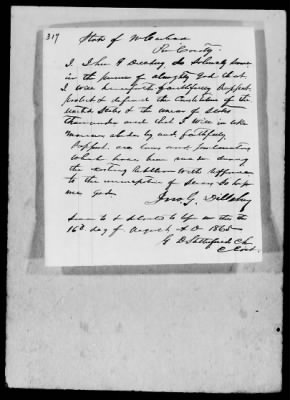 317
State of N Carolina
County
I, John G. do solemnly swear
in the presence of almighty God that
I will henceforth faithfully Support
protect & defend the Constitution of the
United States & the union of States
thereunder and that I will in like
manner abide by and faithfully
Support all laws and proclamations
which have been made during
the existing Rebellion with Reference
to the emancipation of Slaves So help
me God
Jno. G.
Sworn to & Subscribed before me this the
16th day of August A D 1865
G D Clk
C Court